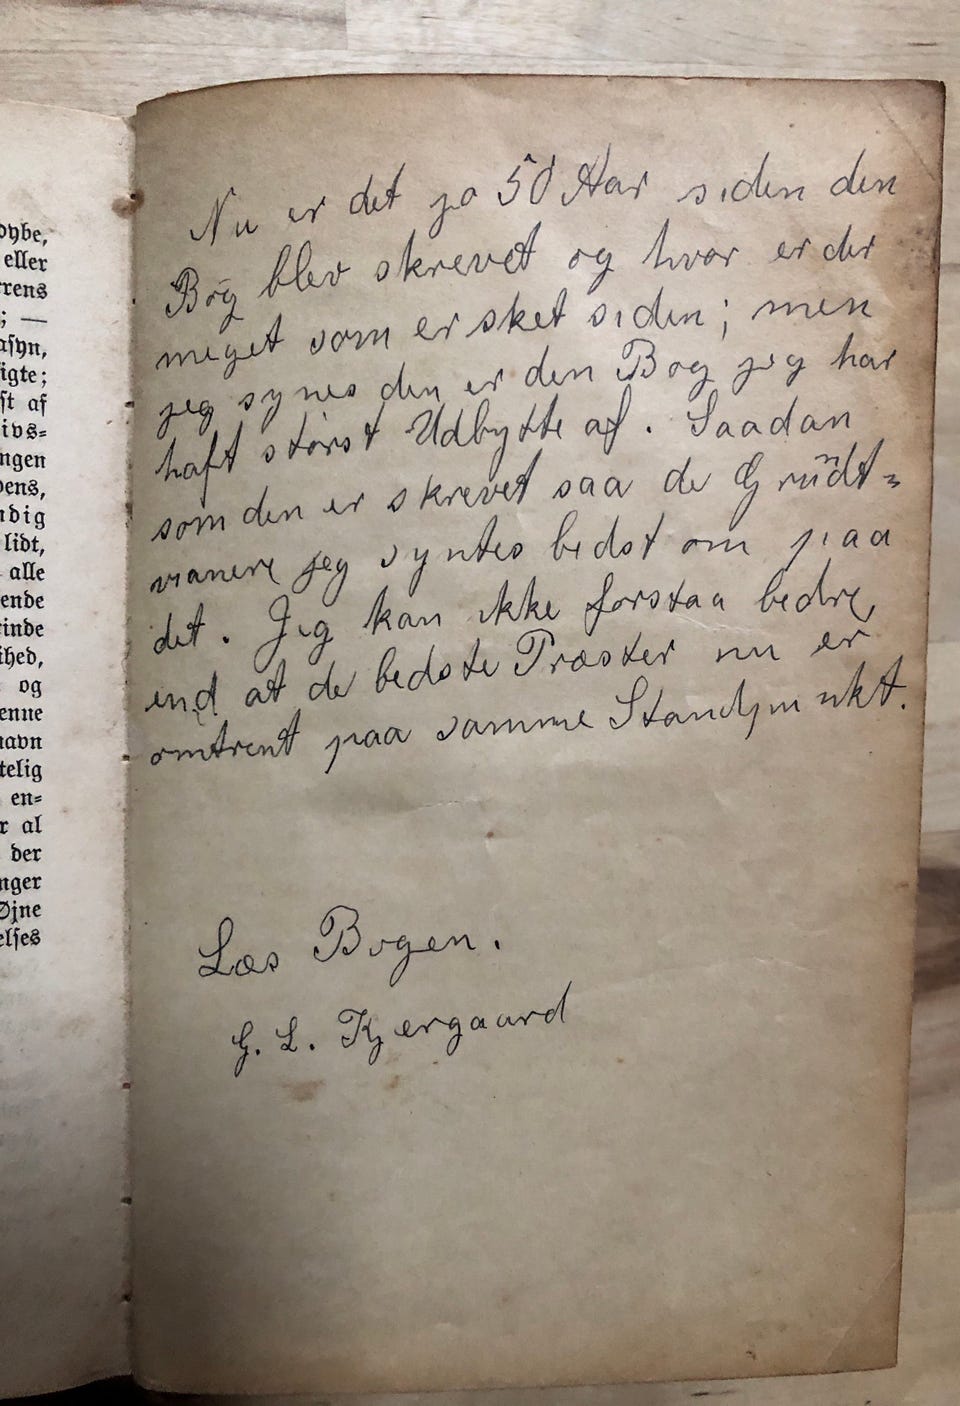 dybe,
eller
rrens
; —
asyn,
igte;
st af
ivs=
ngen
dens,
ndig
lidt,
alle
ende
inde
ihed,
og
enne
navn
telig
en=
r al
der
nger
Øjne
elses
Nu er det jo 50 Aar siden den
Bog blev skrevet og hvor er der
meget som er sket siden; men
jeg synes den er den Bog jeg har
haft størst Udbytte af. Saadan
som den er skrevet saa de Grundt=
vianere jeg syntes bedst om paa
det. Jeg kan ikke forstaa bedre,
end at de bedste Præster nu er
omtrent paa samme Standpunkt.
Læs Bogen.
G. L. Kjergaard